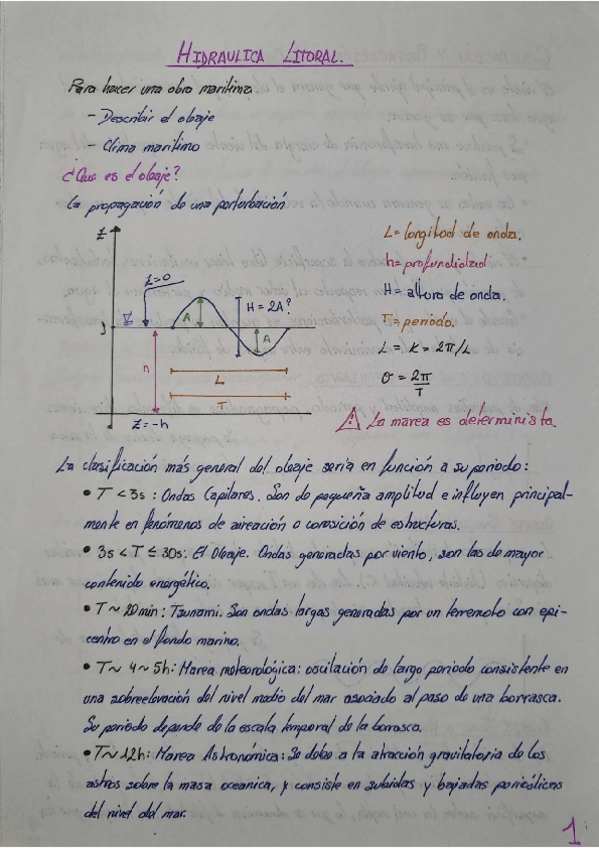 HIDRAULICA LITORAL.
Para hacer una obra marítima
- Describir el oleaje
- Clima marítimo
¿Que es el oleaje?
La propagación de una perturbación
Z
Z=0
A
H = 2A?
A
h
L
T
Z=-h
L= longitud de onda.
h= profundidad
H= altura de onda.
T= periodo.
L = K = 2π/L
σ = 2π/T
! La marea es determinista.
La clasificación más general del oleaje sería en función a su periodo:
• T <3s : Ondas Capilares. Son de pequeña amplitud e influyen principal-
mente en fenómenos de aireación o corrosición de estructuras.
• 3s < T ≤ 30s: El Oleaje. Ondas generadas por viento, son las de mayor
contenido energético.
• T ~ 20 min: Tsunami. Son ondas largas generadas por un terremoto con epi-
centro en el fondo marino.
• T~ 4 ~ 5h: Marea meteorológica: oscilación de largo periodo consistente en
una sobreelevación del nivel medio del mar asociado al paso de una borrasca.
Su periodo depende de la escala temporal de la borrasca.
• T~12h: Marea Astronómica: Se debe a la atracción gravitatoria de los
astros sobre la masa oceanica, y consiste en subidas y bajadas periódicas
del nivel del mar.
1